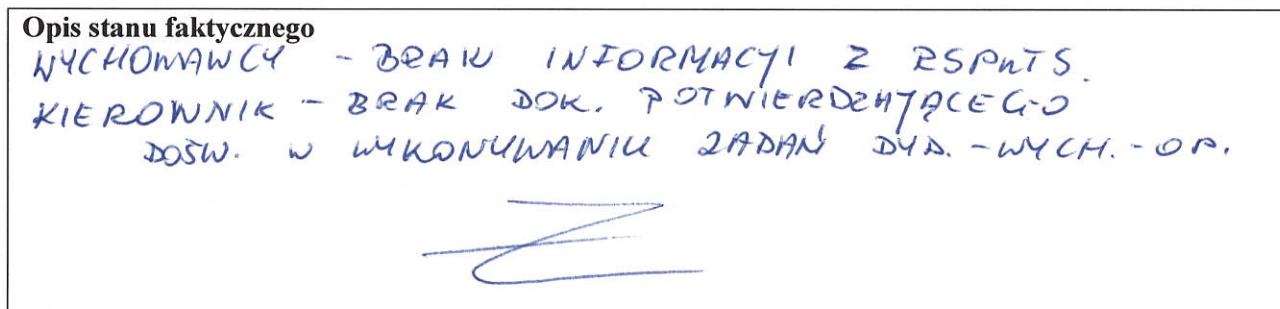 Opis stanu faktycznego
WYCHOWAWCY - BRAK INFORMACJI Z RSPnTS.
KIEROWNIK - BRAK DOK. POTWIERDZAJĄCEGO
DOŚW. W WYKONYWANIU ZADAŃ DYD.-WYCH.-OP.